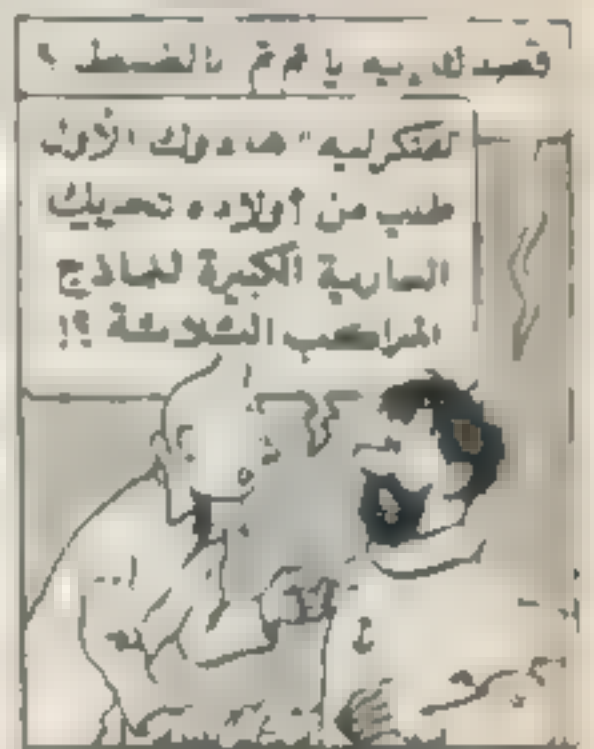 قصدك إيه يا قمقم بالضبط ؟
تفتكر ليه " هدوك الأول
طلب من أولاده تحريك
السارية الكبيرة لنماذج
المراكب الثلاثة ؟!